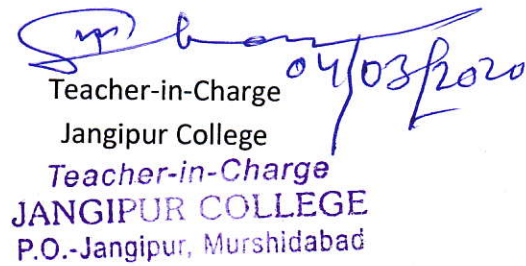 04/03/2020
Teacher-in-Charge
Jangipur College
Teacher-in-Charge
JANGIPUR COLLEGE
P.O.-Jangipur, Murshidabad